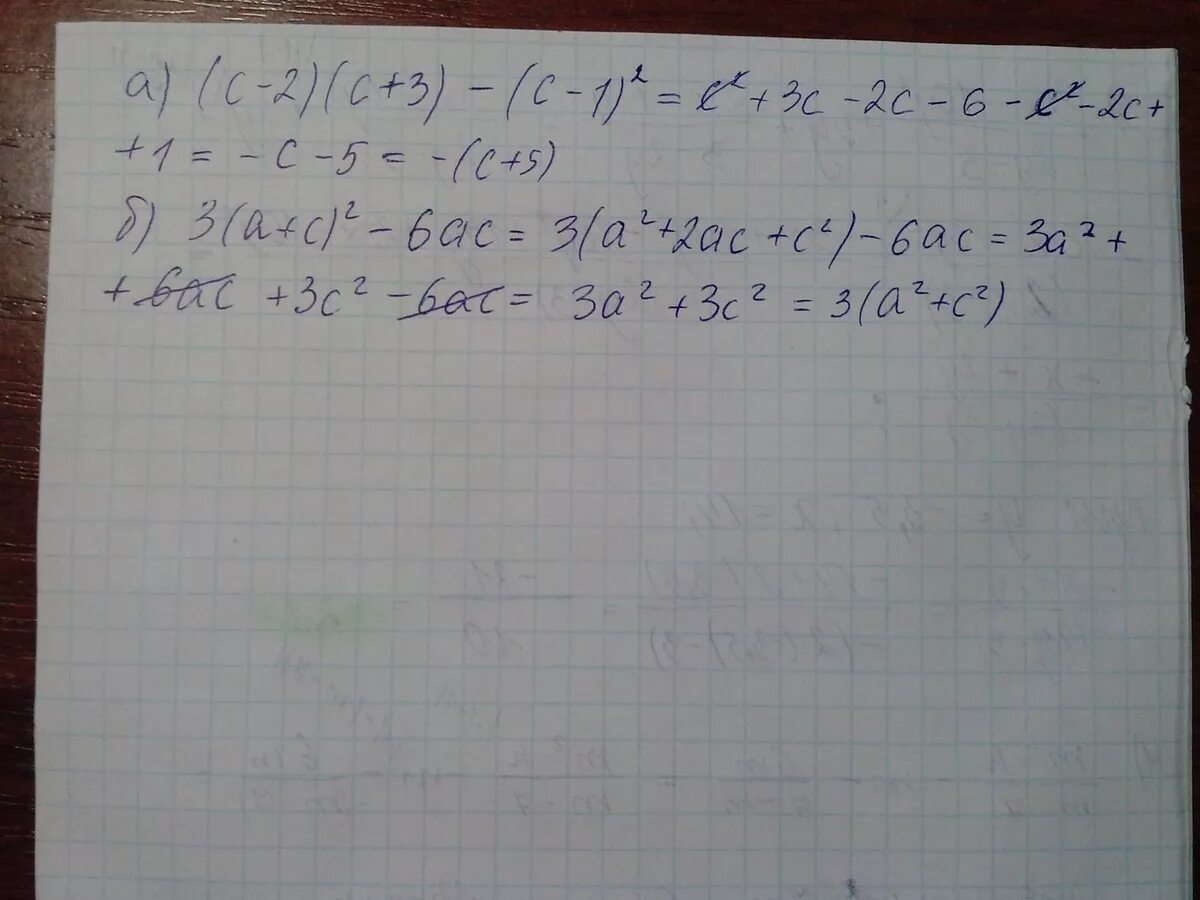 а) (c-2)(c+3) - (c-1)² = c² + 3c - 2c - 6 - c² - 2c +
+ 1 = - c - 5 = - (c+5)
б) 3(a+c)² - 6ac = 3(a²+2ac+c²) - 6ac = 3a² +
+ 6ac + 3c² - 6ac = 3a² + 3c² = 3(a²+c²)